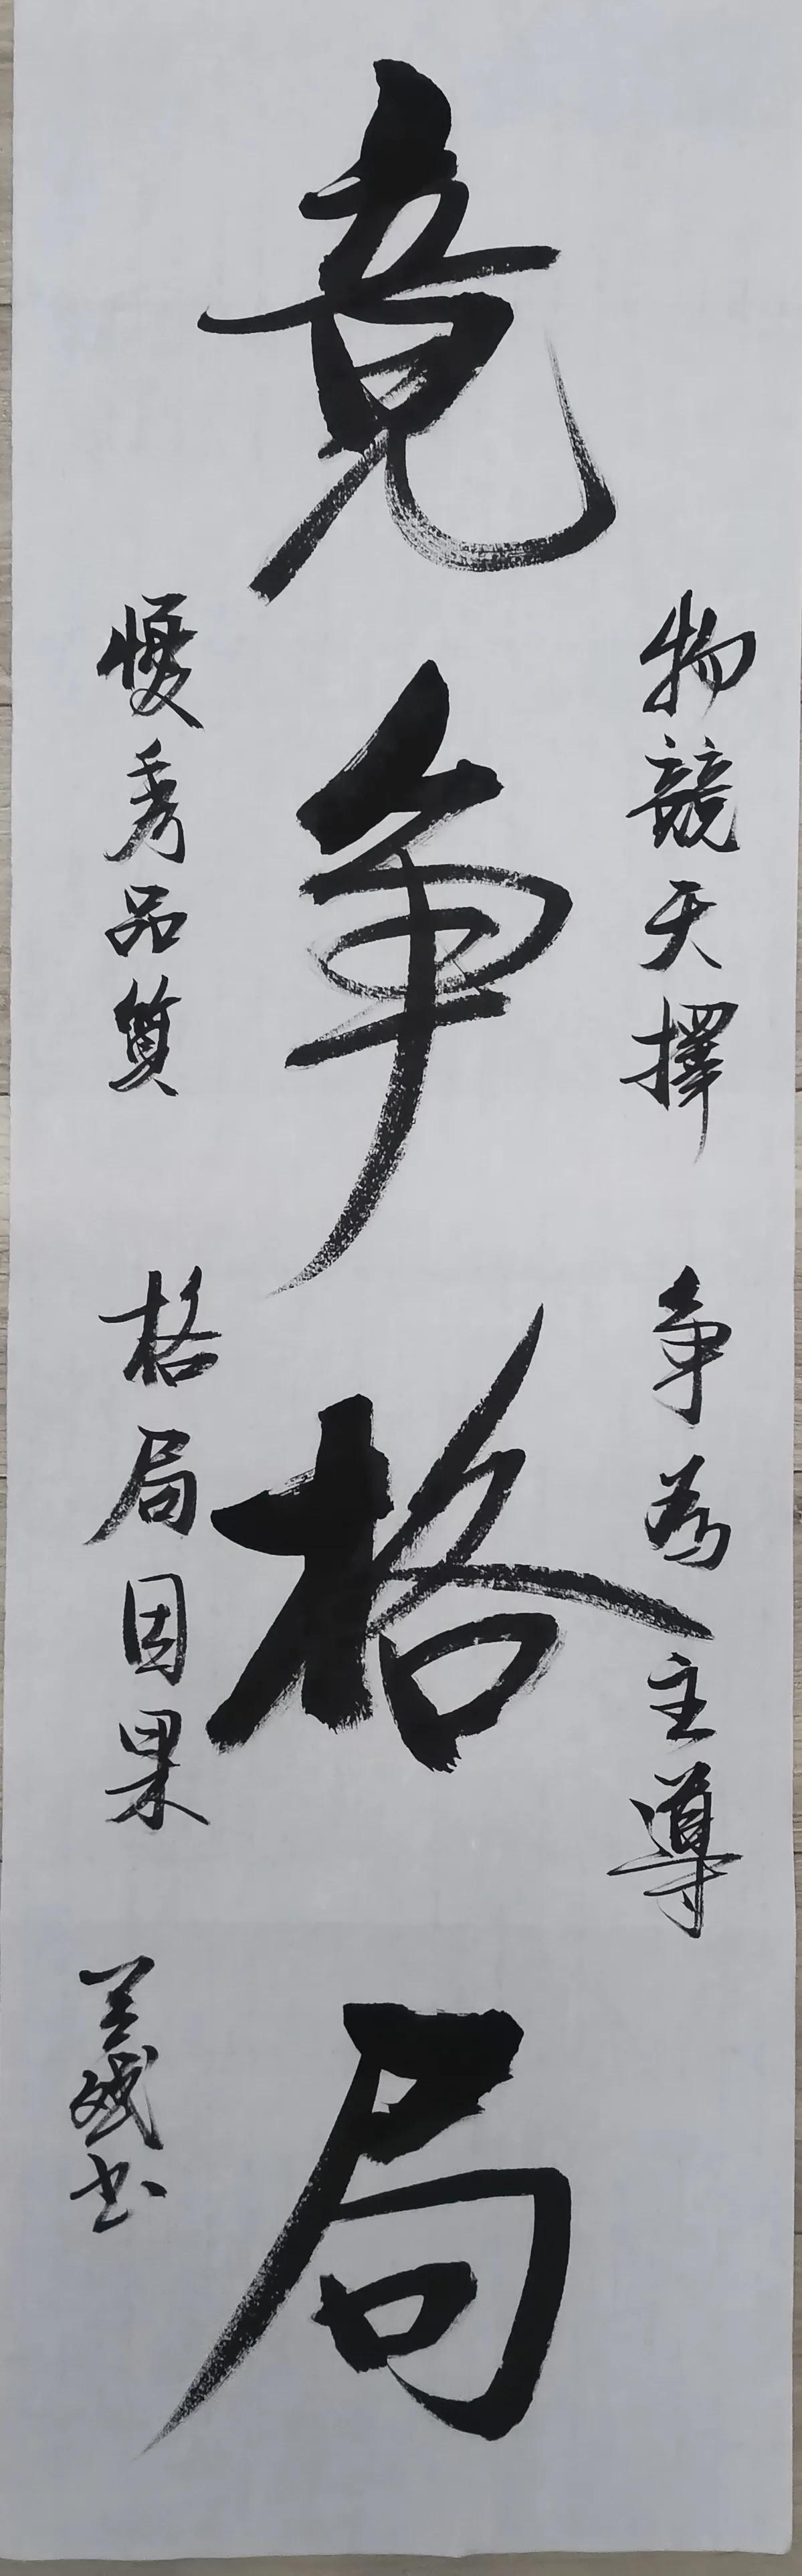 竞争格局
物競天擇 争為主導
優秀品質 格局因果
书